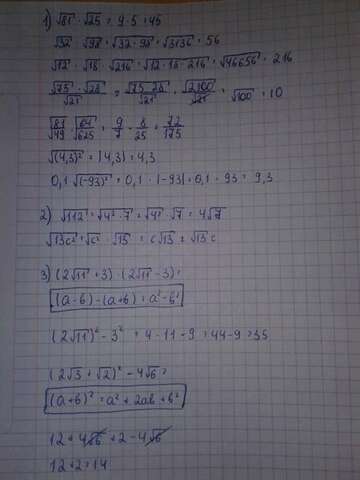 1) √81 · √25 = 9 · 5 = 45
√32 · √98 = √32 · 98 = √3136 = 56
√12 · √18 · √216 = √12 · 18 · 216 = √46656 = 216
√75 · √28 / √21 = √75 · 28 / √21 = √2100 / √21 = √100 = 10
√81/49 · √64/625 = 9/7 · 8/25 = 72/175
√(4,3)² = |4,3| = 4,3
0,1 √(-93)² = 0,1 · |-93| = 0,1 · 93 = 9,3
2) √112 = √4² · 7 = √4² · √7 = 4√7
√13c² = √c² · √13 = c√13 = √13 c
3) (2√11 + 3) · (2√11 - 3) =
(a - b) - (a + b) = a² - b²
(2√11)² - 3² = 4 · 11 - 9 = 44 - 9 = 35
(2√3 + √2)² - 4√6 =
(a + b)² = a² + 2ab + b²
12 + 4√6 + 2 - 4√6
12 + 2 = 14